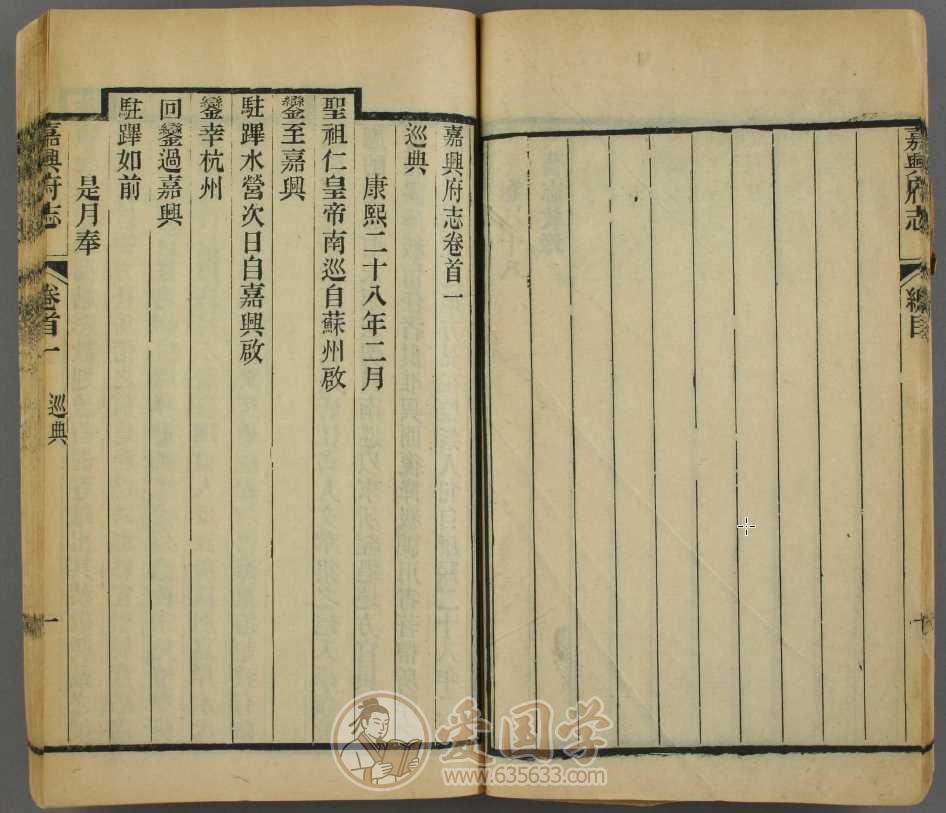 嘉興府志
總目
嘉興府志卷首一
巡典
康熙二十八年二月
聖祖仁皇帝南巡自蘇州啟
鑾至嘉興
駐蹕水營次日自嘉興啟
鑾幸杭州
回鑾過嘉興
駐蹕如前
是月奉
嘉興府志
卷首一
巡典
一
爱国学
www.635633.com